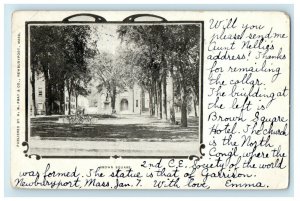 Will you
please send me
Aunt Nellie's
address? Thanks
for remailing
the collar.
The building at
the left is
Brown Square
Hotel. The church
is the North
Cong'l where the
BROWN SQUARE
2nd. C.E. Society of the world
was formed. The statue is that of Garrison.
Newburyport, Mass. Jan. 7. With love, Emma.
NEWBURYPORT, MASS.